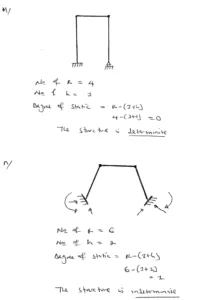 m/
No of R = 4
No of h = 1
Degree of static = R-(3+h)
4-(3+1) = 0
The structure is determinate
n/
No of R = 6
No of h = 2
Degree of static = R-(3+h)
6-(3+2)
= 1
The structure is indeterminate